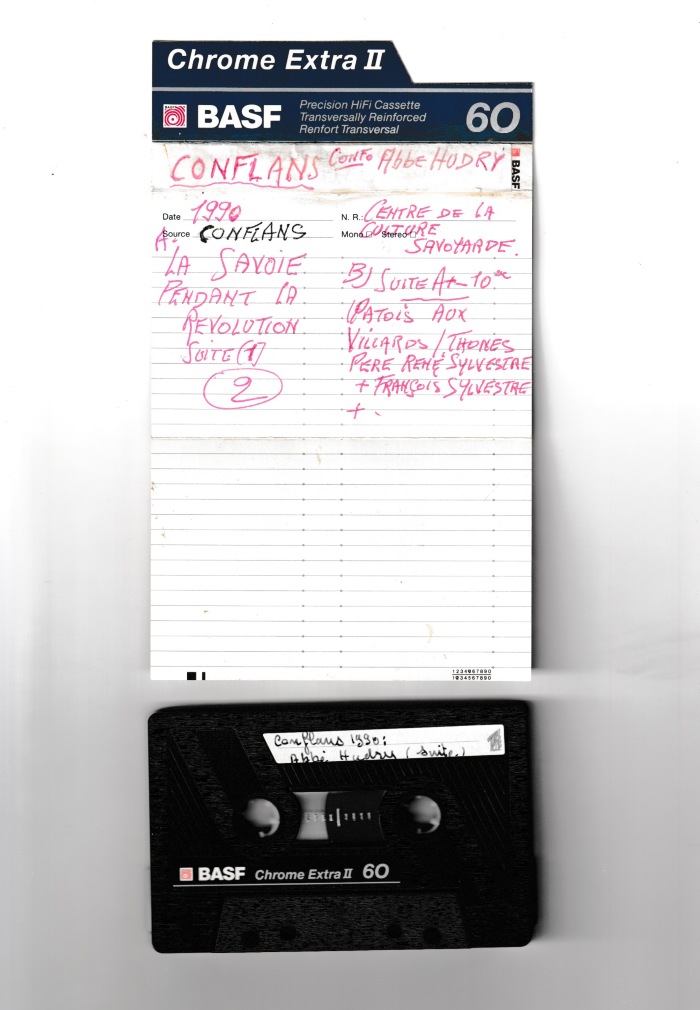 Chrome Extra II
BASF
Precision HiFi Cassette
Transversally Reinforced
Renfort Transversal
60
CONFLANS Confo Abbe HUDRY
BASF
Date 1990
Source CONFLANS
A:
LA SAVOIE
PENDANT LA
REVOLUTION
SUITE (1)
2
N. R.: CENTRE DE LA
Mono Stereo
CULTURE
SAVOYARDE.
B) SUITE A +- 10
PATOIS AUX
VILLARDS / THONES
PERE RENÉ SYLVESTRE
+ FRANÇOIS SYLVESTRE
+ .
1234567890
1234567890
Conflans 1990:
Abbé Hudry (suite)
BASF Chrome Extra II 60